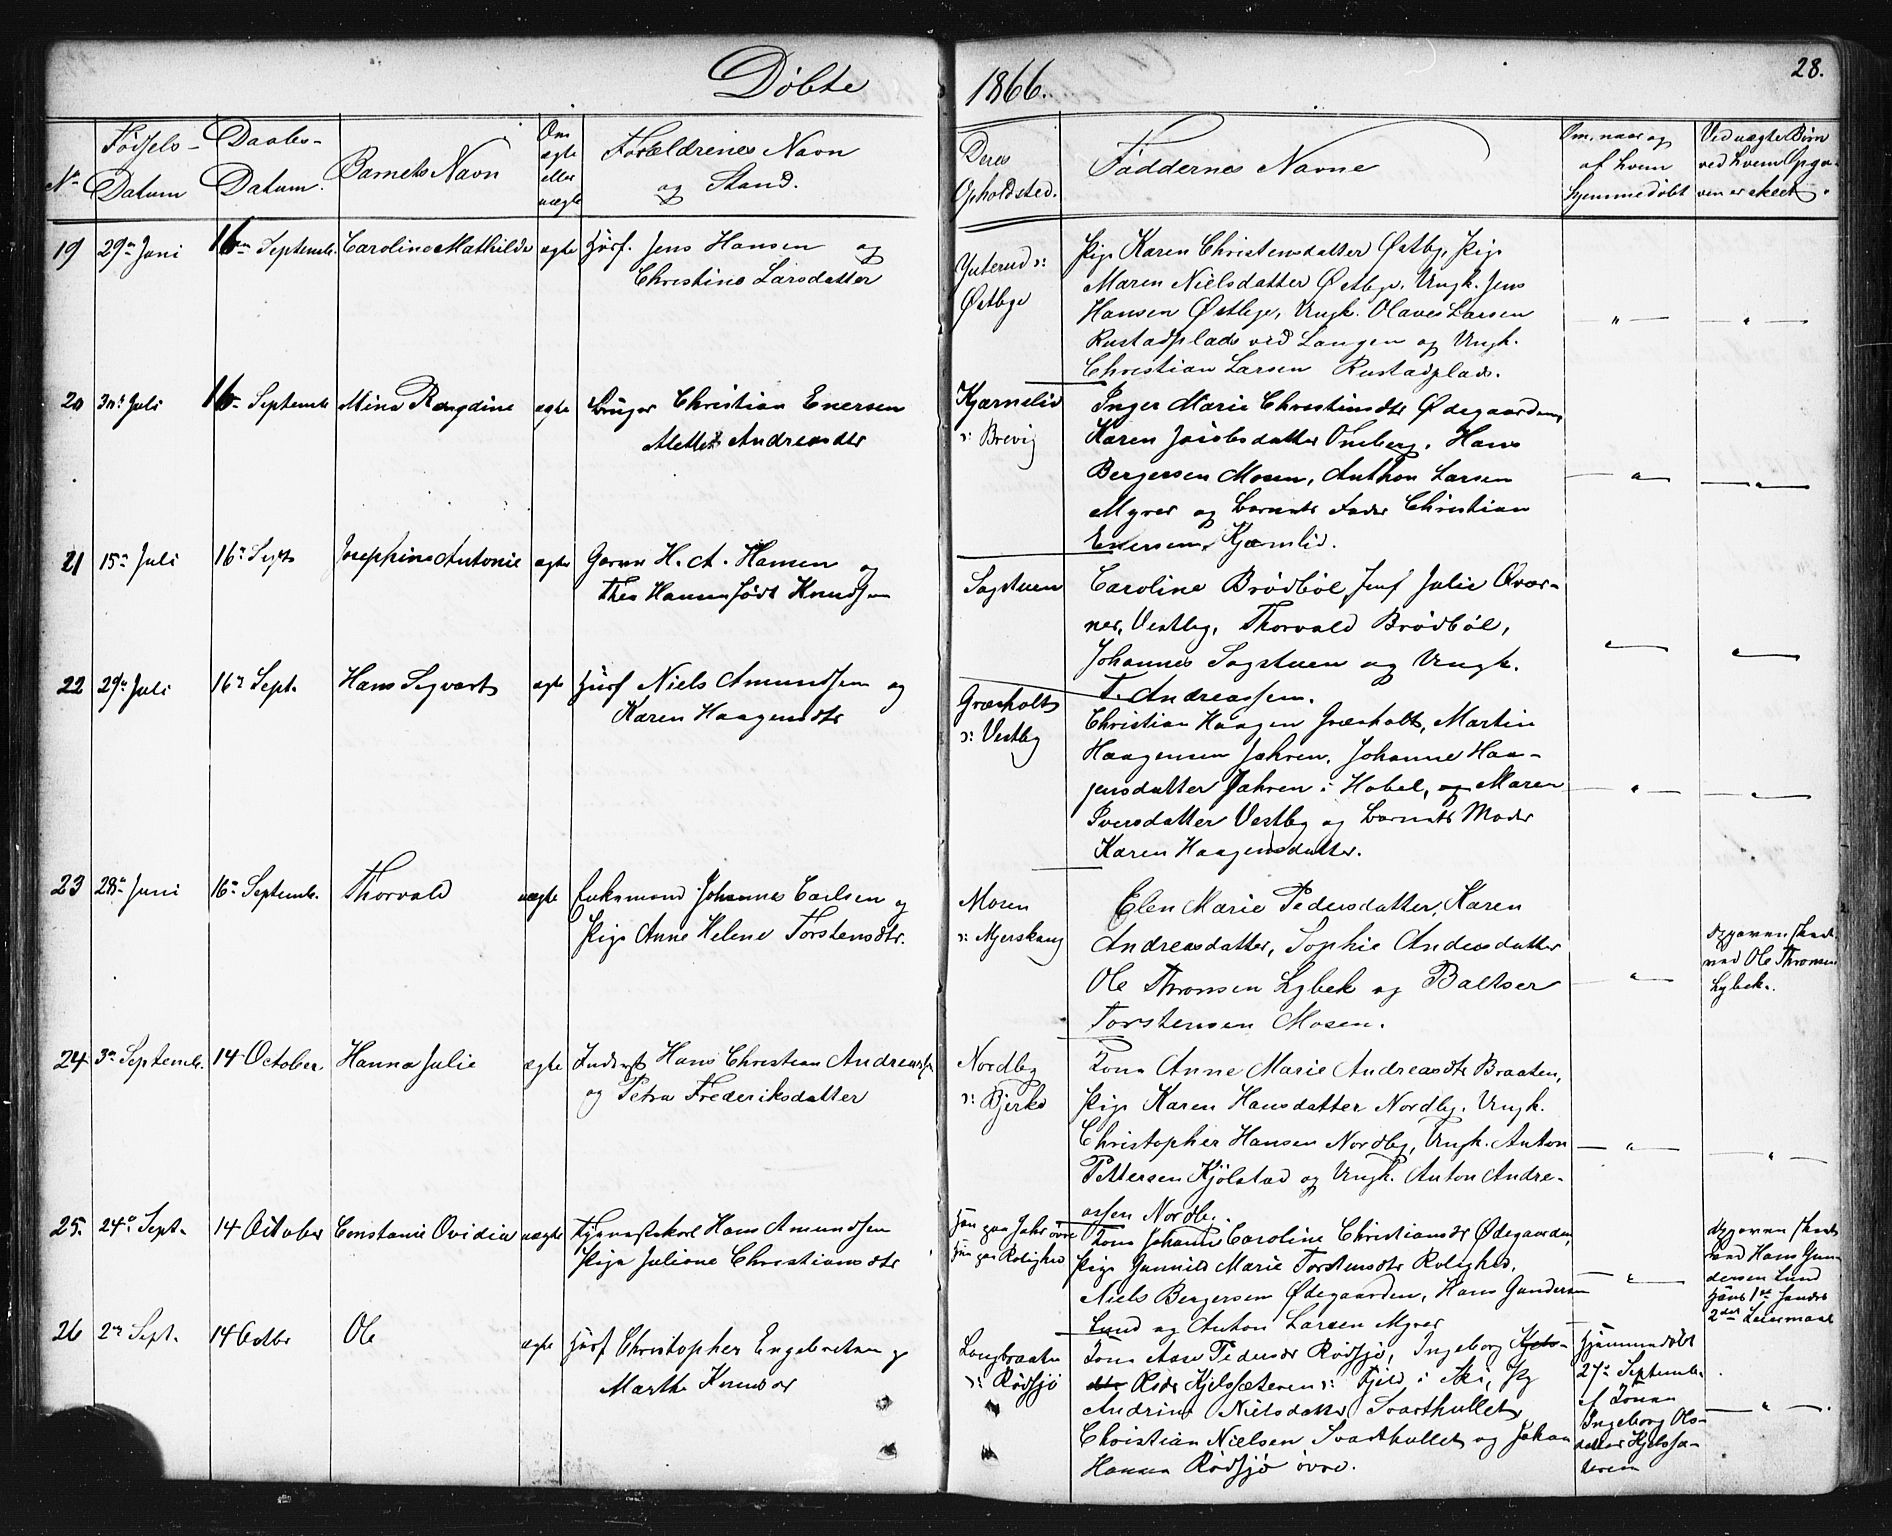 Døbte 1866. 28.
No Fødsels-Datum Daabs-Datum. Barnets Navn Om ægte eller uægte Forældrenes Navn og Stand. Deres Opholdsted. Faddernes Navne Om, naar og af hvem hjemmedøbt Ved uægte Børn ved hvem Opgaven er skeet.
19 29de Juni 16de Septemb. Caroline Mathilde ægte Huusf. Jens Hansen og
Christine Larsdatter
Østbye
Pige Karen Christensdatter Østby, Pige
Maren Nielsdatter Østbye, Ungk. Jens
Hansen Østbye, Ungk. Olaves Larsen
Rustadplads ved Langen og Ungk.
Christian Larsen Rustadplads.
— " — — " —
20 30te Juli 16de Septemb Mina Ragdine ægte Bruger Christian Enersen
Alette Andreasdtr
Kjærnelid
ɔ: Brevig
Inger Marie Christiansdtr Ødegaarden,
Karen Jacobsdatter, Hans
Bergersen Mosen, Anthon Larsen
Myrer og Barnets Fader Christian
Enersen, Kjærnlid.
— " — — " —
21 15de Juli 16de Septb Josephine Antonie ægte H. A. Hansen og
Thea Hansen født Knudsen
Sagstuen
Caroline Brødbøl, Jmf Julie Qvær-
ner, Vestby, Thorvald Brødbøl,
Johannes Sagstuen og Ungk.
T. Andreassen.
— " — — " —
22 29de Juli 16de Sept. Hans Sigvart ægte Huusf Niels Amundsen og
Karen Haagensdtr
Græsholt
ɔ: Vestby
Christian Haagen Græsholt, Martin
Haagensen Jahren, Johanne Haa-
gensdatter Jahren i Hobøl, og Maren
Iversdatter Vestby og Barnets Moder
Karen Haagensdatter.
— " — — " —
23 28de Juni 16de Septemb. Thorvald uægte Enkemand Johannes Carlsen og
Pige Anne Helene Torstensdtr.
Mosen
Elen Marie Pedersdatter, Karen
Andreasdatter, Sophie Andersdatter
Ole Thronsen Lybek og Baltser
Torstensen Mosen.
— " —
Opgaven skeet
ved Ole Thronsen
Lybek.
24 3de Septemb. 14 October Hanna Julie ægte Inderst Hans Christian Andreassen
og Petra Frederiksdatter
Nordby
ɔ: Bjerke
Kone Anne Marie Andreasdtr Braaten,
Pige Karen Hansdatter Nordby, Ungk.
Christopher Hansen Nordby, Ungk. Anton
Pettersen Kjølstad og Ungk. Anton Andre-
assen Nordby.
— " — — " —
25. 24de Sept. 14 October Constanse Ovidia uægte Tjenestekarl Hans Amundsen
Pige Juliane Christiansdtr
Han paa Jahr øvre
Hun paa Rolighed
Kone Johanne Caroline Christiansdtr Ødegaarden,
Pige Gunnild Marie Torstensdtr Rolighed,
Niels Bergersen Ødegaarden, Hans Gundersen
Lund og Anton Larsen Myrer
— " —
Opgaven skeet
ved Hans Gun-
dersen Lund
Hans 1ste Hendes
2den Leiermaal
26 2den Sept. 14 Octbr Ole ægte Huusf Christopher Engebretsen og
Marthe Knudsdr
Langbraaten
ɔ: Rødsjø
Kone Aase Pedersdr Rødsjø, Ingeborg
Kjelssæteren ɔ: Fjeld i Ski, Pg
Andrine Nielsdatter Svarthullet
Christian Nielsen Svarthullet og Johan
Hansen Rødsjø øvre.
Hjemmedøbt
27de Septemb.
af Konen
Ingeborg Ols-
datter Kjelssæ-
teren
— " —